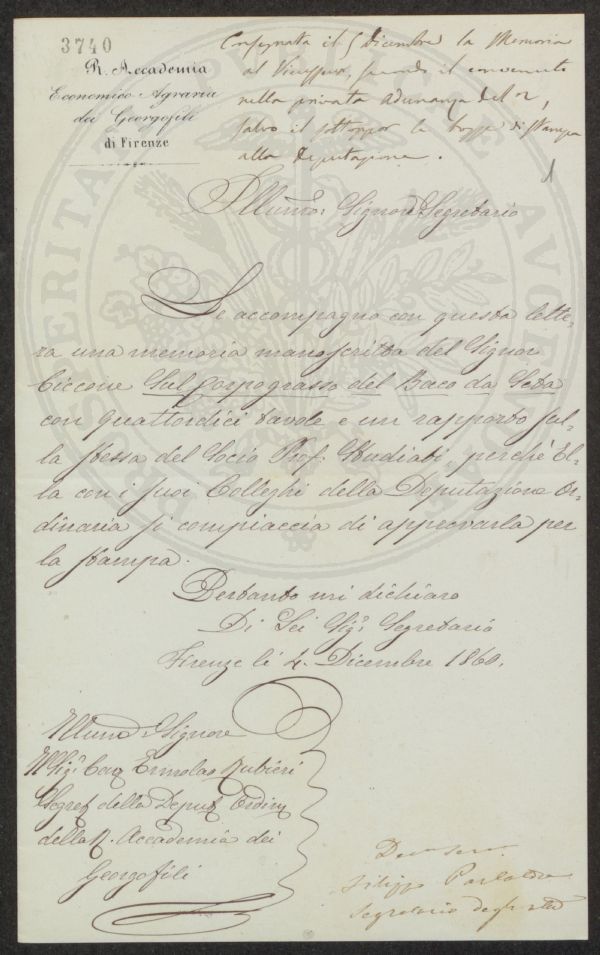 3740
R. Accademia
Economico Agraria
dei Georgofili
di Firenze
Consegnata il 5 dicembre la Memoria
al Vieusseux, secondo il convenuto
nella privata adunanza del 2,
salvo il sottopor le bozze di stampa
alla Deputazione.
1
Illumo: Signore Segretario
Le accompagno con questa lette-
ra una memoria manoscritta del Signor
Ciccone Sul Corpograsso del Baco da Seta
con quattordici tavole e un rapporto sul-
la stessa del Socio Prof. Studiati, perchè El-
la con i suoi Colleghi della Deputazione Or-
dinaria si compiaccia di approvarla per
la stampa.
Pertanto mi dichiaro
Di Lei Sigr. Segretario
Firenze li 4. Dicembre 1860.
Illumo: Signore
Il Sigr. Cav. Ermolao Rubieri
Segret. della Deput. Ordin.
della R. Accademia dei
Georgofili
Filippo Parlatore
Segretario degli Atti